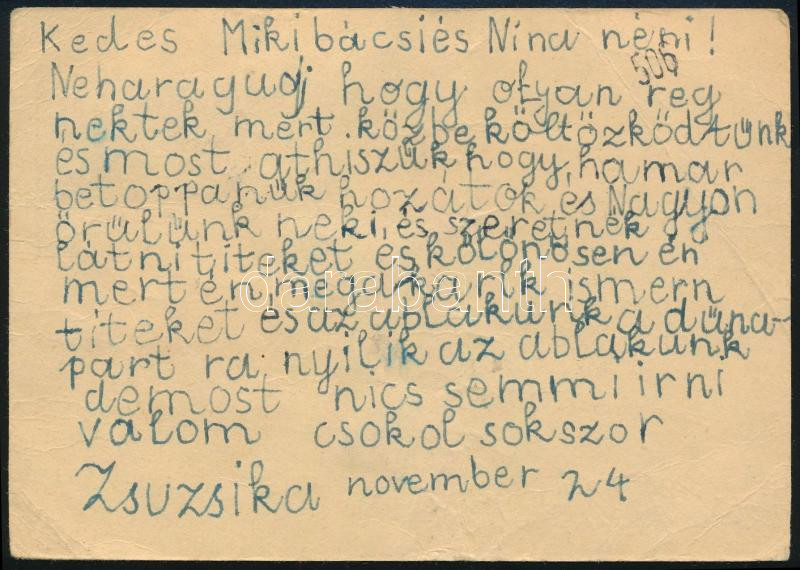 Kedes Mikibácsiés Nina néni!
506
Neharaguај hogy olyan reg
nektek mert közbeköltözködtünk
és most athiszük hogy, hamar
betoppanük hozátok és Nagyon
örülünk neki és szeretnék
látni titeket és kölönösen én
mert én meg akarik ismern
titeket és az ablakunk a düna-
part ra nyilik az ablakunk
demost nics semmi irni
valom csokol sokszor
Zsuzsika november 24
darabanth